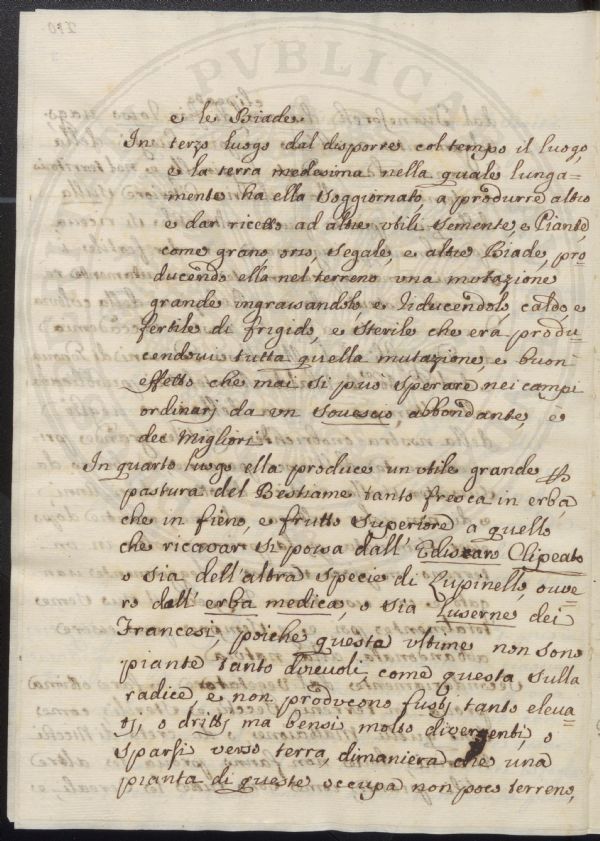 e le Biade.
In terzo luogo dal disporre col tempo il luogo,
e la terra medesima nella quale lunga=
mente ha ella soggiornato, a produrre altro
e dar ricetto ad altre utili semente, e Piante,
come grano, orzo, segale, e altre Biade, pro=
ducendo ella nel terreno una mutazione
grande ingrassandolo, e riducendolo, caldo, e
fertile di frigido, e sterile che era, produ=
cendovi tutta quella mutazione, e buon
effetto che mai si può sperare nei campi
ordinarj da un sovescio, abbondante, e
dei migliori.
In quarto luogo ella produce un utile grande
pastura del Bestiame tanto fresca in erba,
che in fieno, e frutto superiore a quello
che ricavar si possa dall' Edisaro Clipeato
o sia dell' altra specie di Lupinello, ovve=
ro dall' erba medica, o sia Luserne dei
Francesi, poiche queste ultime non sono
piante tanto durevoli, come questa sulla
radice e non producono fusti tanto eleva=
ti, o dritti ma bensi molto divergenti, o
sparsi verso terra, dimaniera che una
pianta di queste occupa non poco terreno,